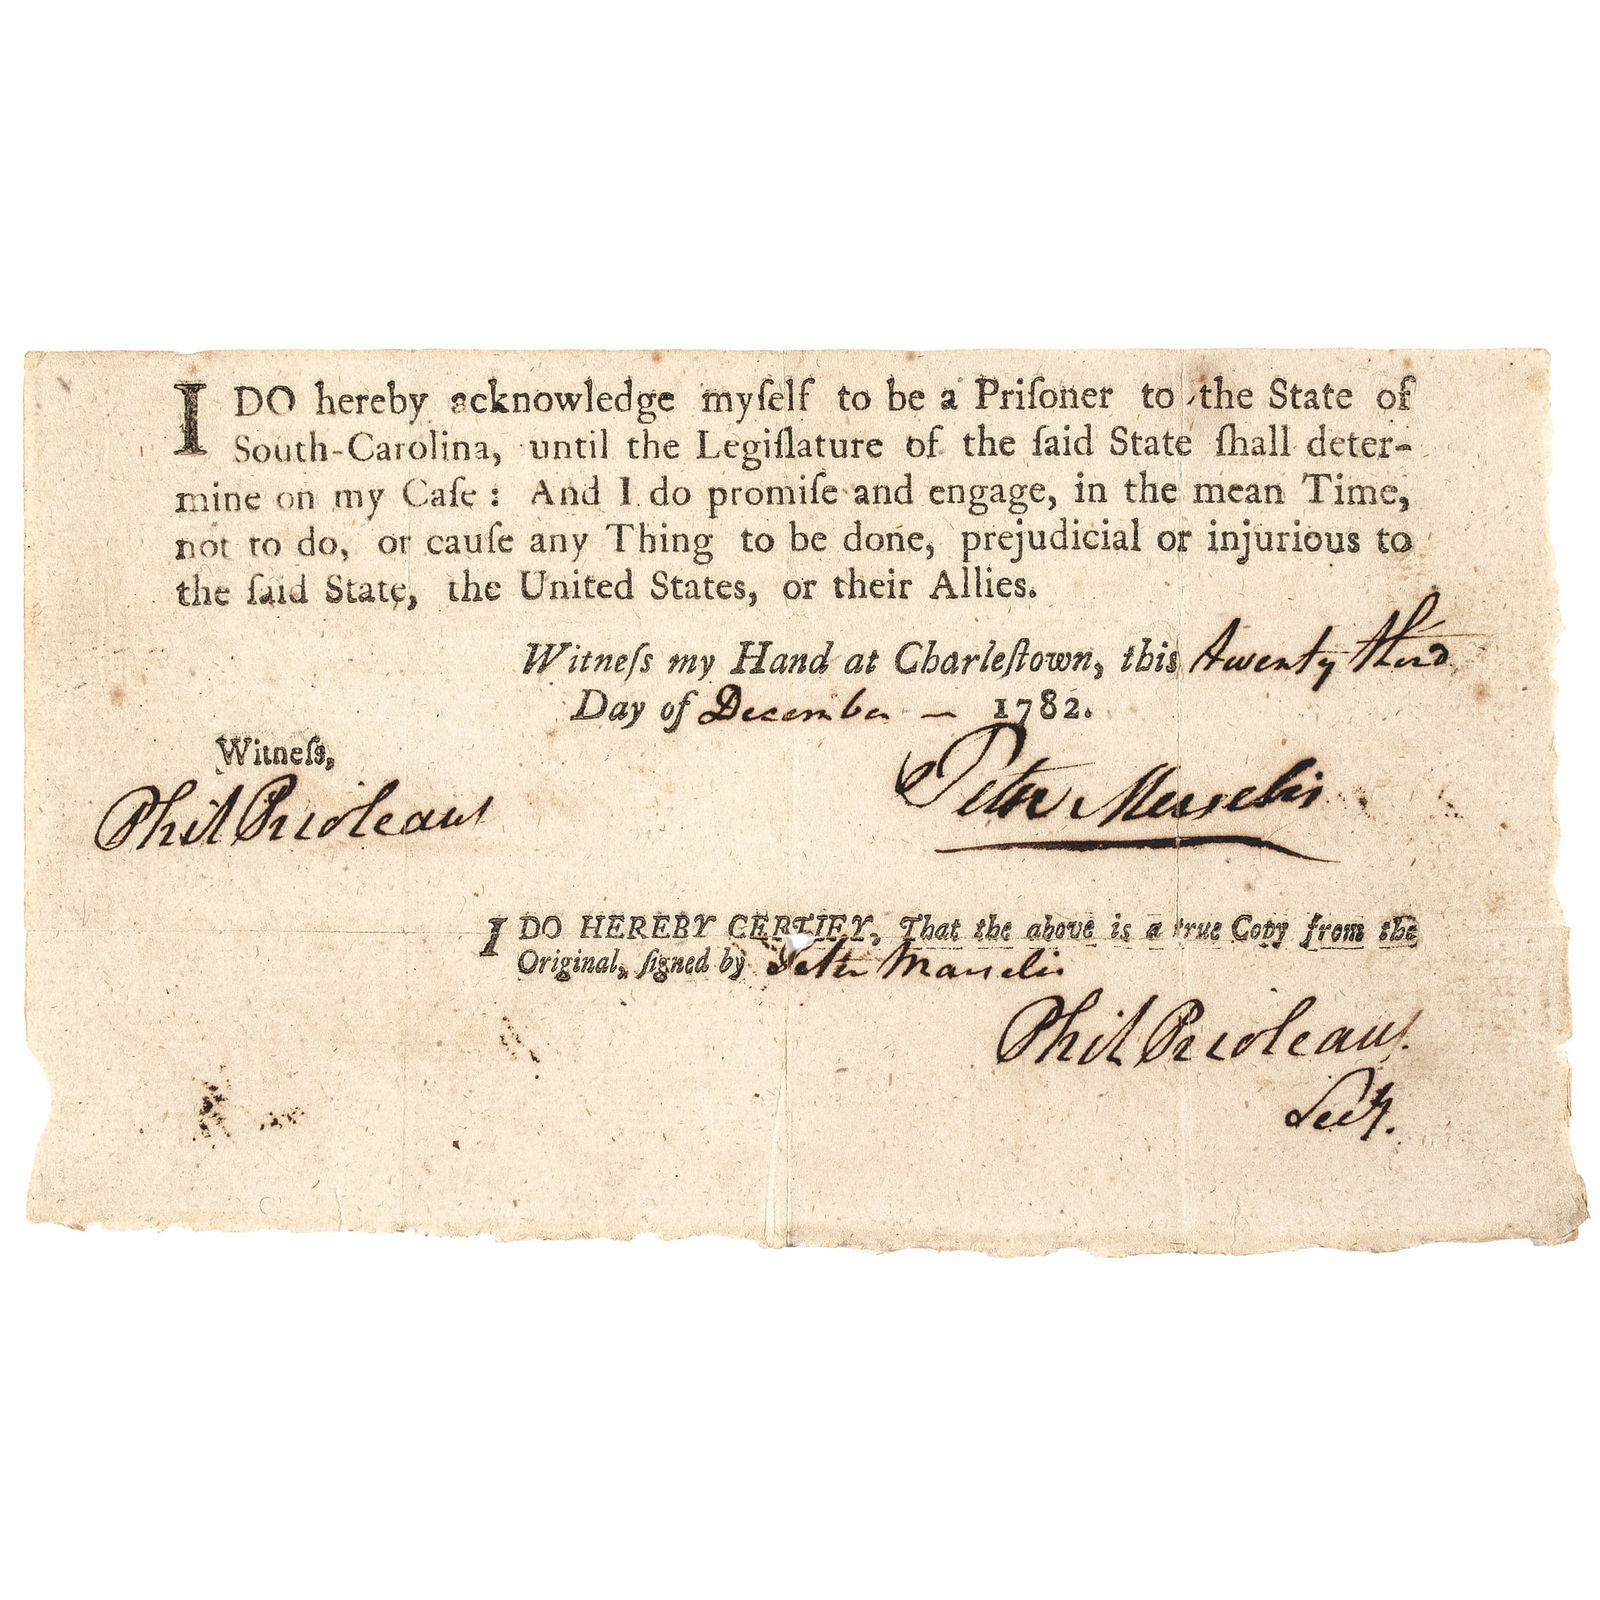 I DO hereby acknowledge myſelf to be a Priſoner to the State of
South-Carolina, until the Legiſlature of the ſaid State ſhall deter-
mine on my Caſe : And I do promiſe and engage, in the mean Time,
not to do, or cauſe any Thing to be done, prejudicial or injurious to
the ſaid State, the United States, or their Allies.
Witneſs my Hand at Charleſtown, this twenty third
Day of December — 1782.
Witneſs,
Phil Prioleau
Peter
I DO HEREBY CERTIFY, That the above is a true Copy from the
Original, ſigned by Peter
Phil Prioleau.
Secy.